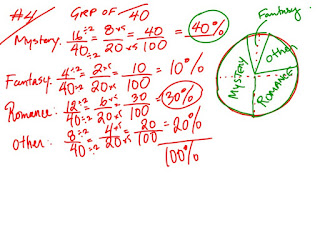 #4 GREP OF 40
Mystery: 16÷2/40÷2 = 8×5/20×5 = 40/100 = 40%
Fantasy: 4÷2/40÷2 = 2×5/20×5 = 10/100 = 10%
Romance: 12÷2/40÷2 = 6×5/20×5 = 30/100 = 30%
Other: 8÷2/40÷2 = 4×5/20×5 = 20/100 = 20%
100%
Fantasy
OTHER
MYSTERY
ROMANCE